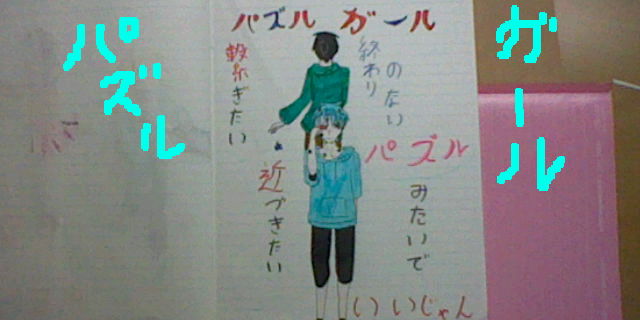 パズル
ガール
パズル ガール
繋ぎたい
近づきたい
終わり
のない
パズル
みたいで
いいじゃん